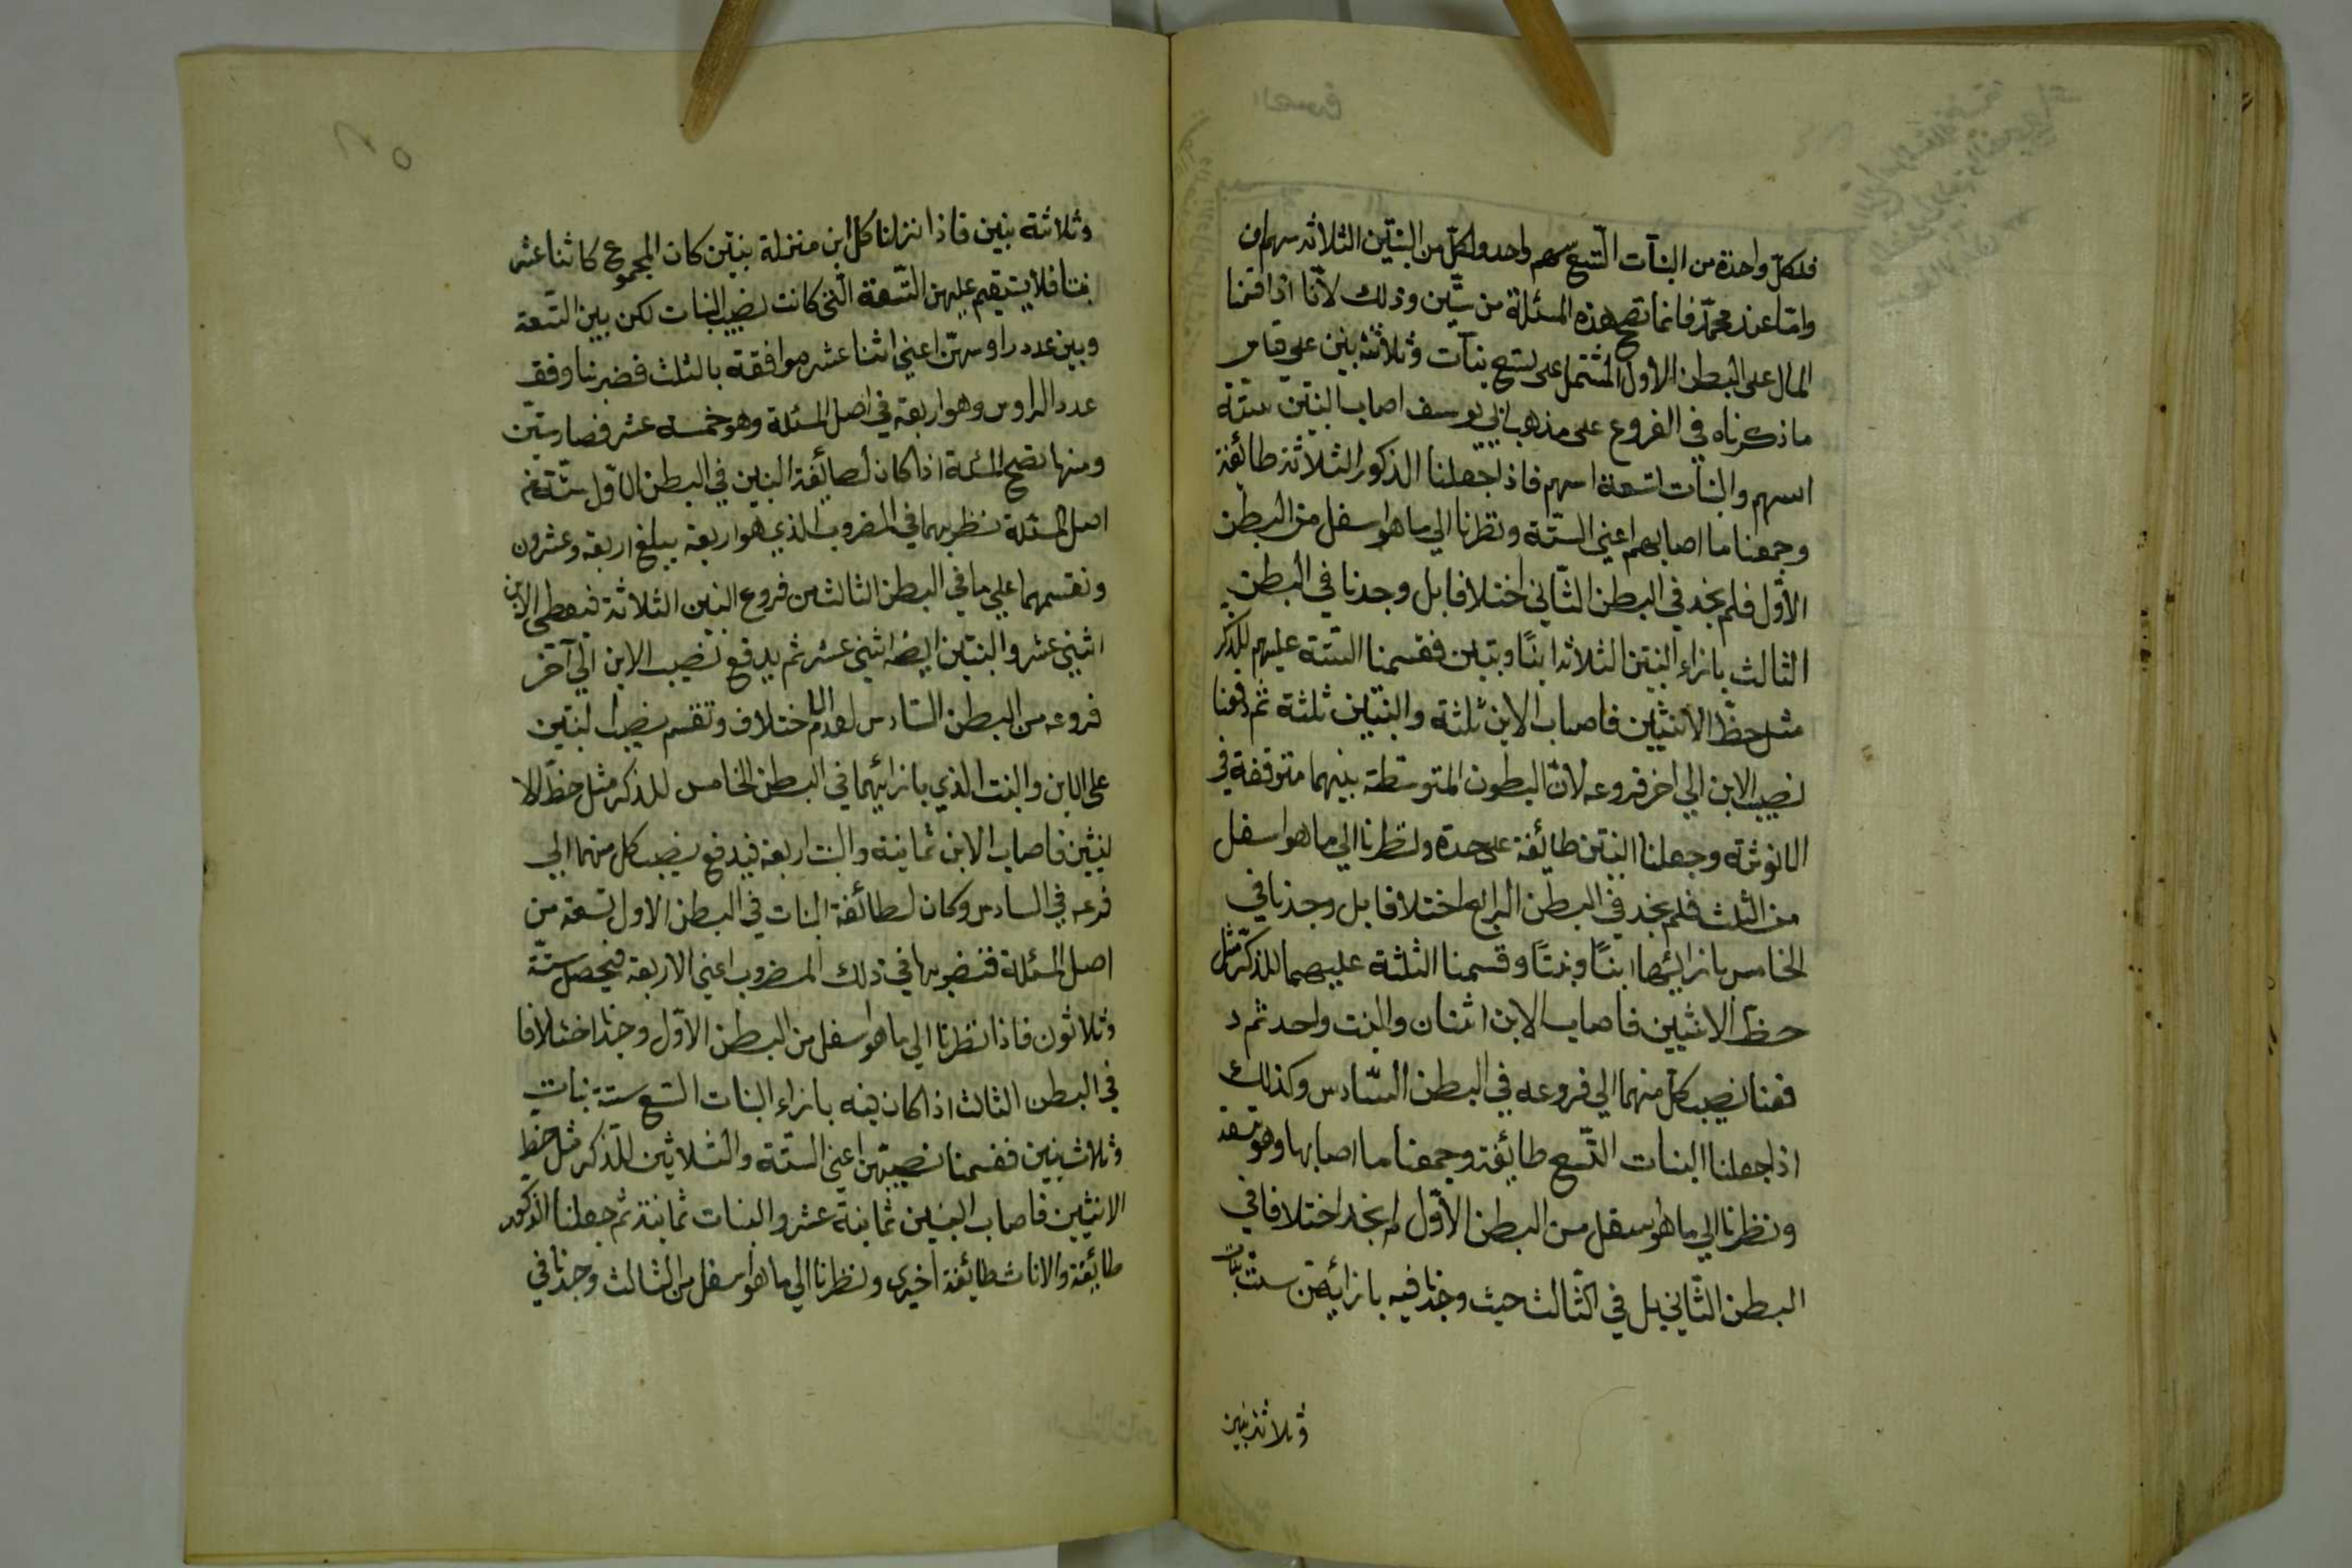 فلكل واحدة من البنات التسع سهم واحد ولكل من البنتين الثلاثة سهمان
وامّا عند محمّد فانما تصح هذه المسئلة من ستّين وذلك لانّا اذا قسمنا
المال على البطن الأول المشتمل على تسع بنات وثلاثة بنين على قياس
ماذكرناه في الفروع على مذهب ابي يوسف اصاب البنين ستة
اسهم والبنات تسعة اسهم فاذا جعلنا الذكور الثلاثة طائفة
وجمعنا ما اصابهم اعني الستّة ونظرنا الي ما هو اسفل من البطن
الأوّل فلم نجد في البطن الثّاني اختلافا بل وجدنا في البطن
الثالث بازاء البنين الثلاثة ابنًا وبنتين فقسمنا الستة عليهم للذكر
مثل حظّ الأنثيين فاصاب الابن ثلثة والبنتين ثلثة ثم دفعنا
نصيب الابن الي اخر فروعه لان البطون المتوسّطة بينهما متوقفة في
الانوثة وجعلنا البنتين طائفة على حدة ونظرنا الي ما هو اسفل
من الثلث فلم نجد في البطن الرابع اختلافا بل وجدنا في
الخامس بازائهما ابنًا وبنتًا وقسمنا الثلثة عليهما للذكر مثل
حظّ الانثيين فاصاب الابن اثنان والبنت واحد ثم د
فعنا نصيب كل منهما الي فروعه في البطن السّادس وكذلك
اذا جعلنا البنات التّسع طائفة وجمعنا ما اصابها وهو تسعة
ونظرنا الي ما هو اسفل من البطن الأوّل لم نجد اختلافا في
البطن الثّاني بل في الثّالث حيث وجدنا فيه بازائهن ست بنات
وثلاثة بنين
٢٥
وثلاثة بنين فاذا نزلنا كل ابن منزلة بنتين كان المجموع كاثنا عشر
بنتا فلا يستقيم عليهن التّسعة الّتي كانت نصيب البنات لكن بين التّسعة
وبين عدد راوسهنّ اعني اثنا عشر موافقة بالثلث فضربنا وفق
عدد الراوس وهو اربعة في اصل المسئلة وهو خمسة عشر فصار ستين
ومنها تصح المسئلة اذا كان لطائفة البنين في البطن الاوّل ستّة من
اصل المسئلة نضربهما في المضروب الذي هو اربعة يبلغ اربعة وعشرون
ونقسمهما علي ما في البطن الثالث من فروع البنين الثلاثة فيعطي الابن
اثني عشر والبنتين ايضا اثني عشر ثم يدفع نصيب الابن الي آخر
فروعه من البطن السّادس لعدم الاختلاف وتقسم نصيب البنتين
على الابن والبنت الذي بازائهما في البطن الخامس للذكر مثل حظّ الا
نثيين فاصاب الابن ثمانية والبنت اربعة فيدفع نصيب كل منهما الي
فرعه في السادس وكان لطائفة البنات في البطن الاول تسعة من
اصل المسئلة فنضربها في ذلك المضروب اعني الاربعة فيحصل ستّة
وثلاثون فاذا نظرنا الي ما هو اسفل من البطن الأوّل وجدنا اختلافا
في البطن الثالث اذ كان فيه بازاء البنات التسع ستة بنات
وثلاث بنين فقسمنا نصيبهن اعني الستّة والثلاثين للذكر مثل حظ
الانثيين فاصاب البنين ثمانية عشر والبنات ثمانية ثم جعلنا الذكور
طائفة والاناث طائفة اخرى ونظرنا الي ما هو اسفل من الثالث وجدنا في